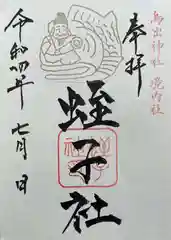 烏出神社 境内社
奉拝
蛭子社
令和四年
七月 日